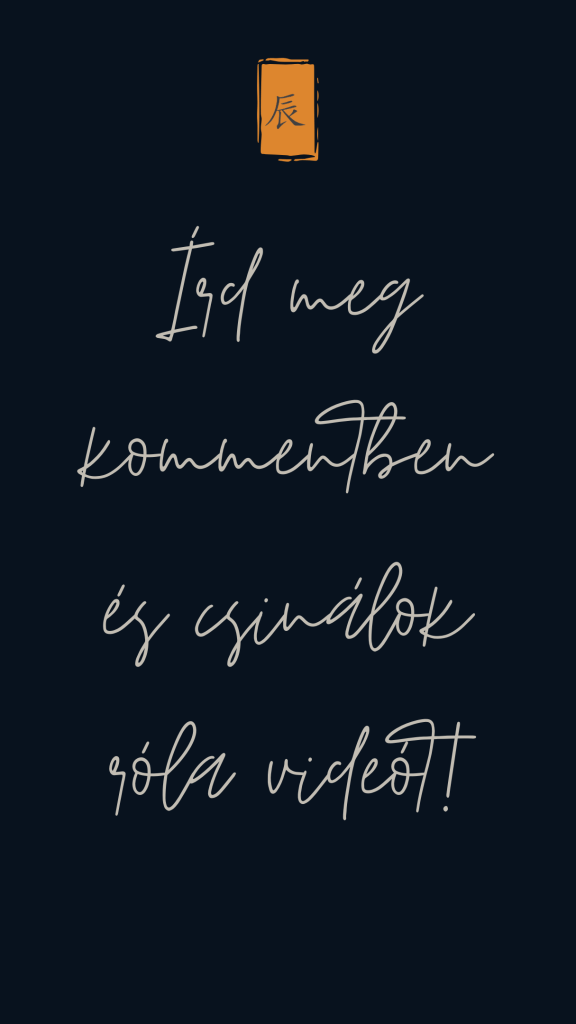 辰
Írd meg
kommentben
és csinálok
róla videót!